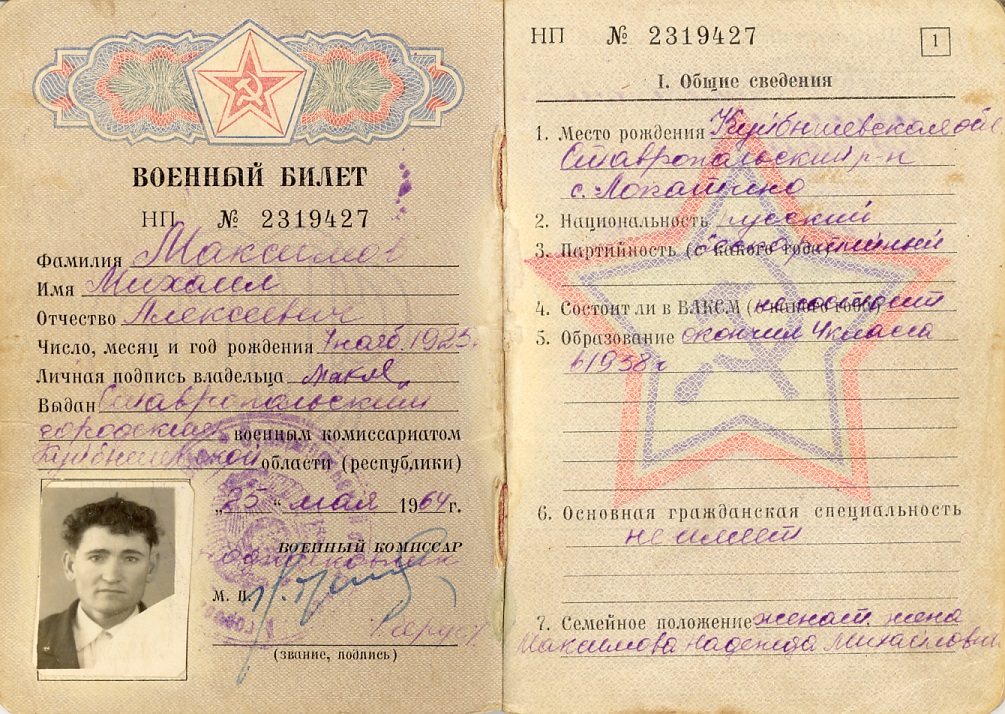 ВОЕННЫЙ БИЛЕТ
НП № 2319427
Фамилия Максимов
Имя Михаил
Отчество Алексеевич
Число, месяц и год рождения 7 нояб. 1923.
Личная подпись владельца
Выдан Ставропольский
городским военным комиссариатом
Куйбышевской области (республики)
„25“ мая 1964 г.
ВОЕННЫЙ КОМИССАР
подполковник
М. П.
(звание, подпись)
НП № 2319427
1
I. Общие сведения
1. Место рождения Куйбышевская
Ставропольский р-н
с. Лопатино
2. Национальность русский
3. Партийность (с какого года) беспартийный
4. Состоит ли в ВЛКСМ (с какого года) не состоит
5. Образование окончил 4 класса
в 1938 г
6. Основная гражданская специальность
не имеет
7. Семейное положение женат, жена
Максимова Надежда Михайловна